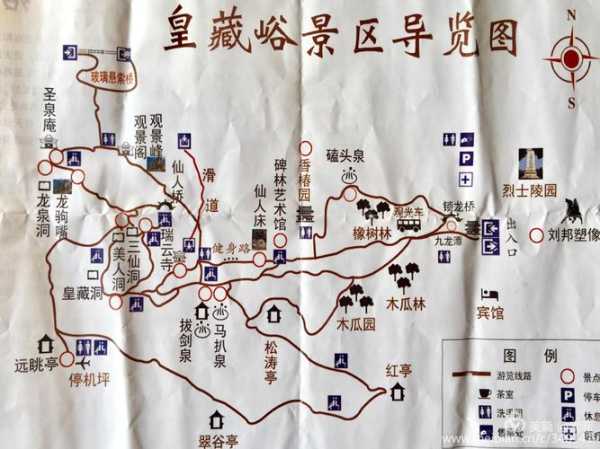 皇藏峪景区导览图
N
S
玻璃悬索桥
圣泉庵
观景阁
观景峰
仙人桥
滑道
碑林艺术馆
香椿园
磕头泉
仙人床
橡树林
观光车
锁龙桥
九龙潭
出入口
烈士陵园
刘邦塑像
龙泉洞
龙驹嘴
美人洞
三仙洞
瑞云寺
健身路
皇藏洞
拔剑泉
马扒泉
松涛亭
木瓜园
木瓜林
宾馆
远眺亭
停机坪
翠谷亭
红亭
P
图 例
游览线路
景点
茶室
P
停车
洗手间
休息
售票处
医疗
美篇